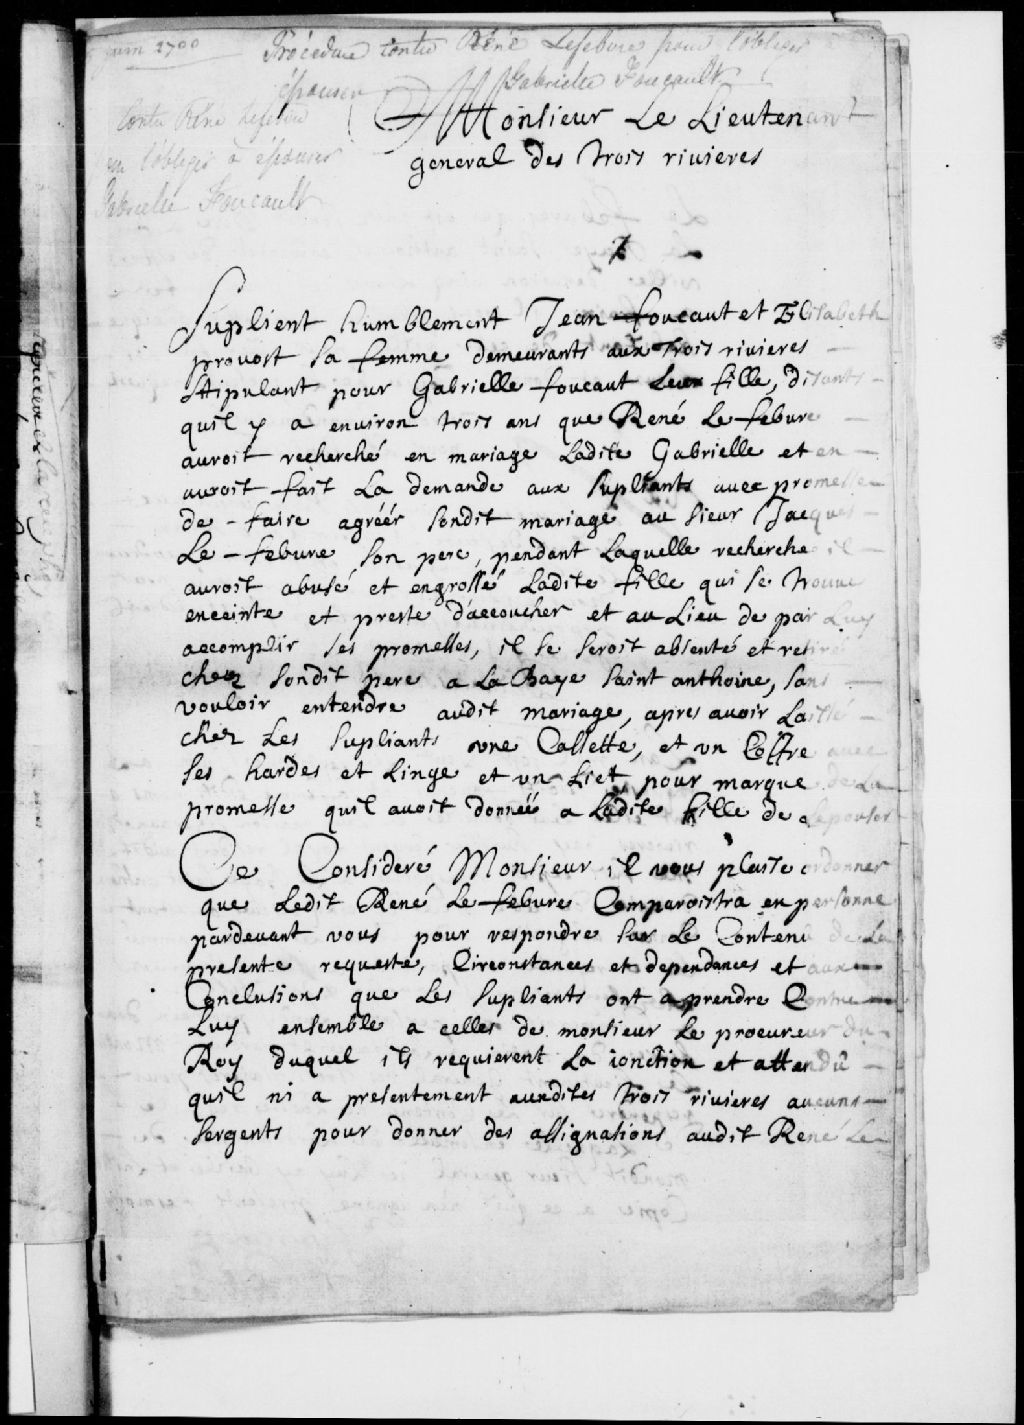 juin 1700
Procedure contre René Lefebvre pour l'obliger
épouser Gabrielle Foucault
Contre Réne Lefebvre
l'obliger à épouser
Gabrielle Foucault
A Monsieur Le Lieutenant
general des trois riuieres
Suplient humblement Jean foucaut et Elisabeth
prouost sa femme demeurants aux trois riuieres
stipulant pour Gabrielle foucaut Leur fille, disants
quil y a enuiron trois ans que René Le febure
auroit recherché en mariage Ladite Gabrielle et en
auroit fait La demande aux supliants auec promesse
de faire agréér sondit mariage au sieur Jacques
Le febure son pere, pendant Laquelle recherche il
auroit abusé et engrossé Ladite fille qui se trouue
enceinte et preste d'accoucher et au Lieu de par Luy
accomplir ses promesses, il se seroit absenté et retiré
chez sondit pere a La Baye saint anthoine, sans
vouloir entendre audit mariage, apres auoir Laissé
chez Les supliants vne Cassette, et vn Coffre auec
ses hardes et Linge et vn Lict pour marque de La
promesse quil auoit donnéé a Ladite fille de Lepouser
Ce Consideré Monsieur il vous plaise ordonner
que Ledit René Le febure Comparoistra en personne
pardeuant vous pour respondre sur Le Contenu de La
presente requeste, Circonstances et dependances et aux
Conclusions que Les supliants ont a prendre Contre
Luy ensemble a celles de monsieur Le procureur du
Roy duquel ils requierent La ionction et attendu
quil ni a presentement auxdites trois riuieres aucuns
sergents pour donner des assignations audit René Le